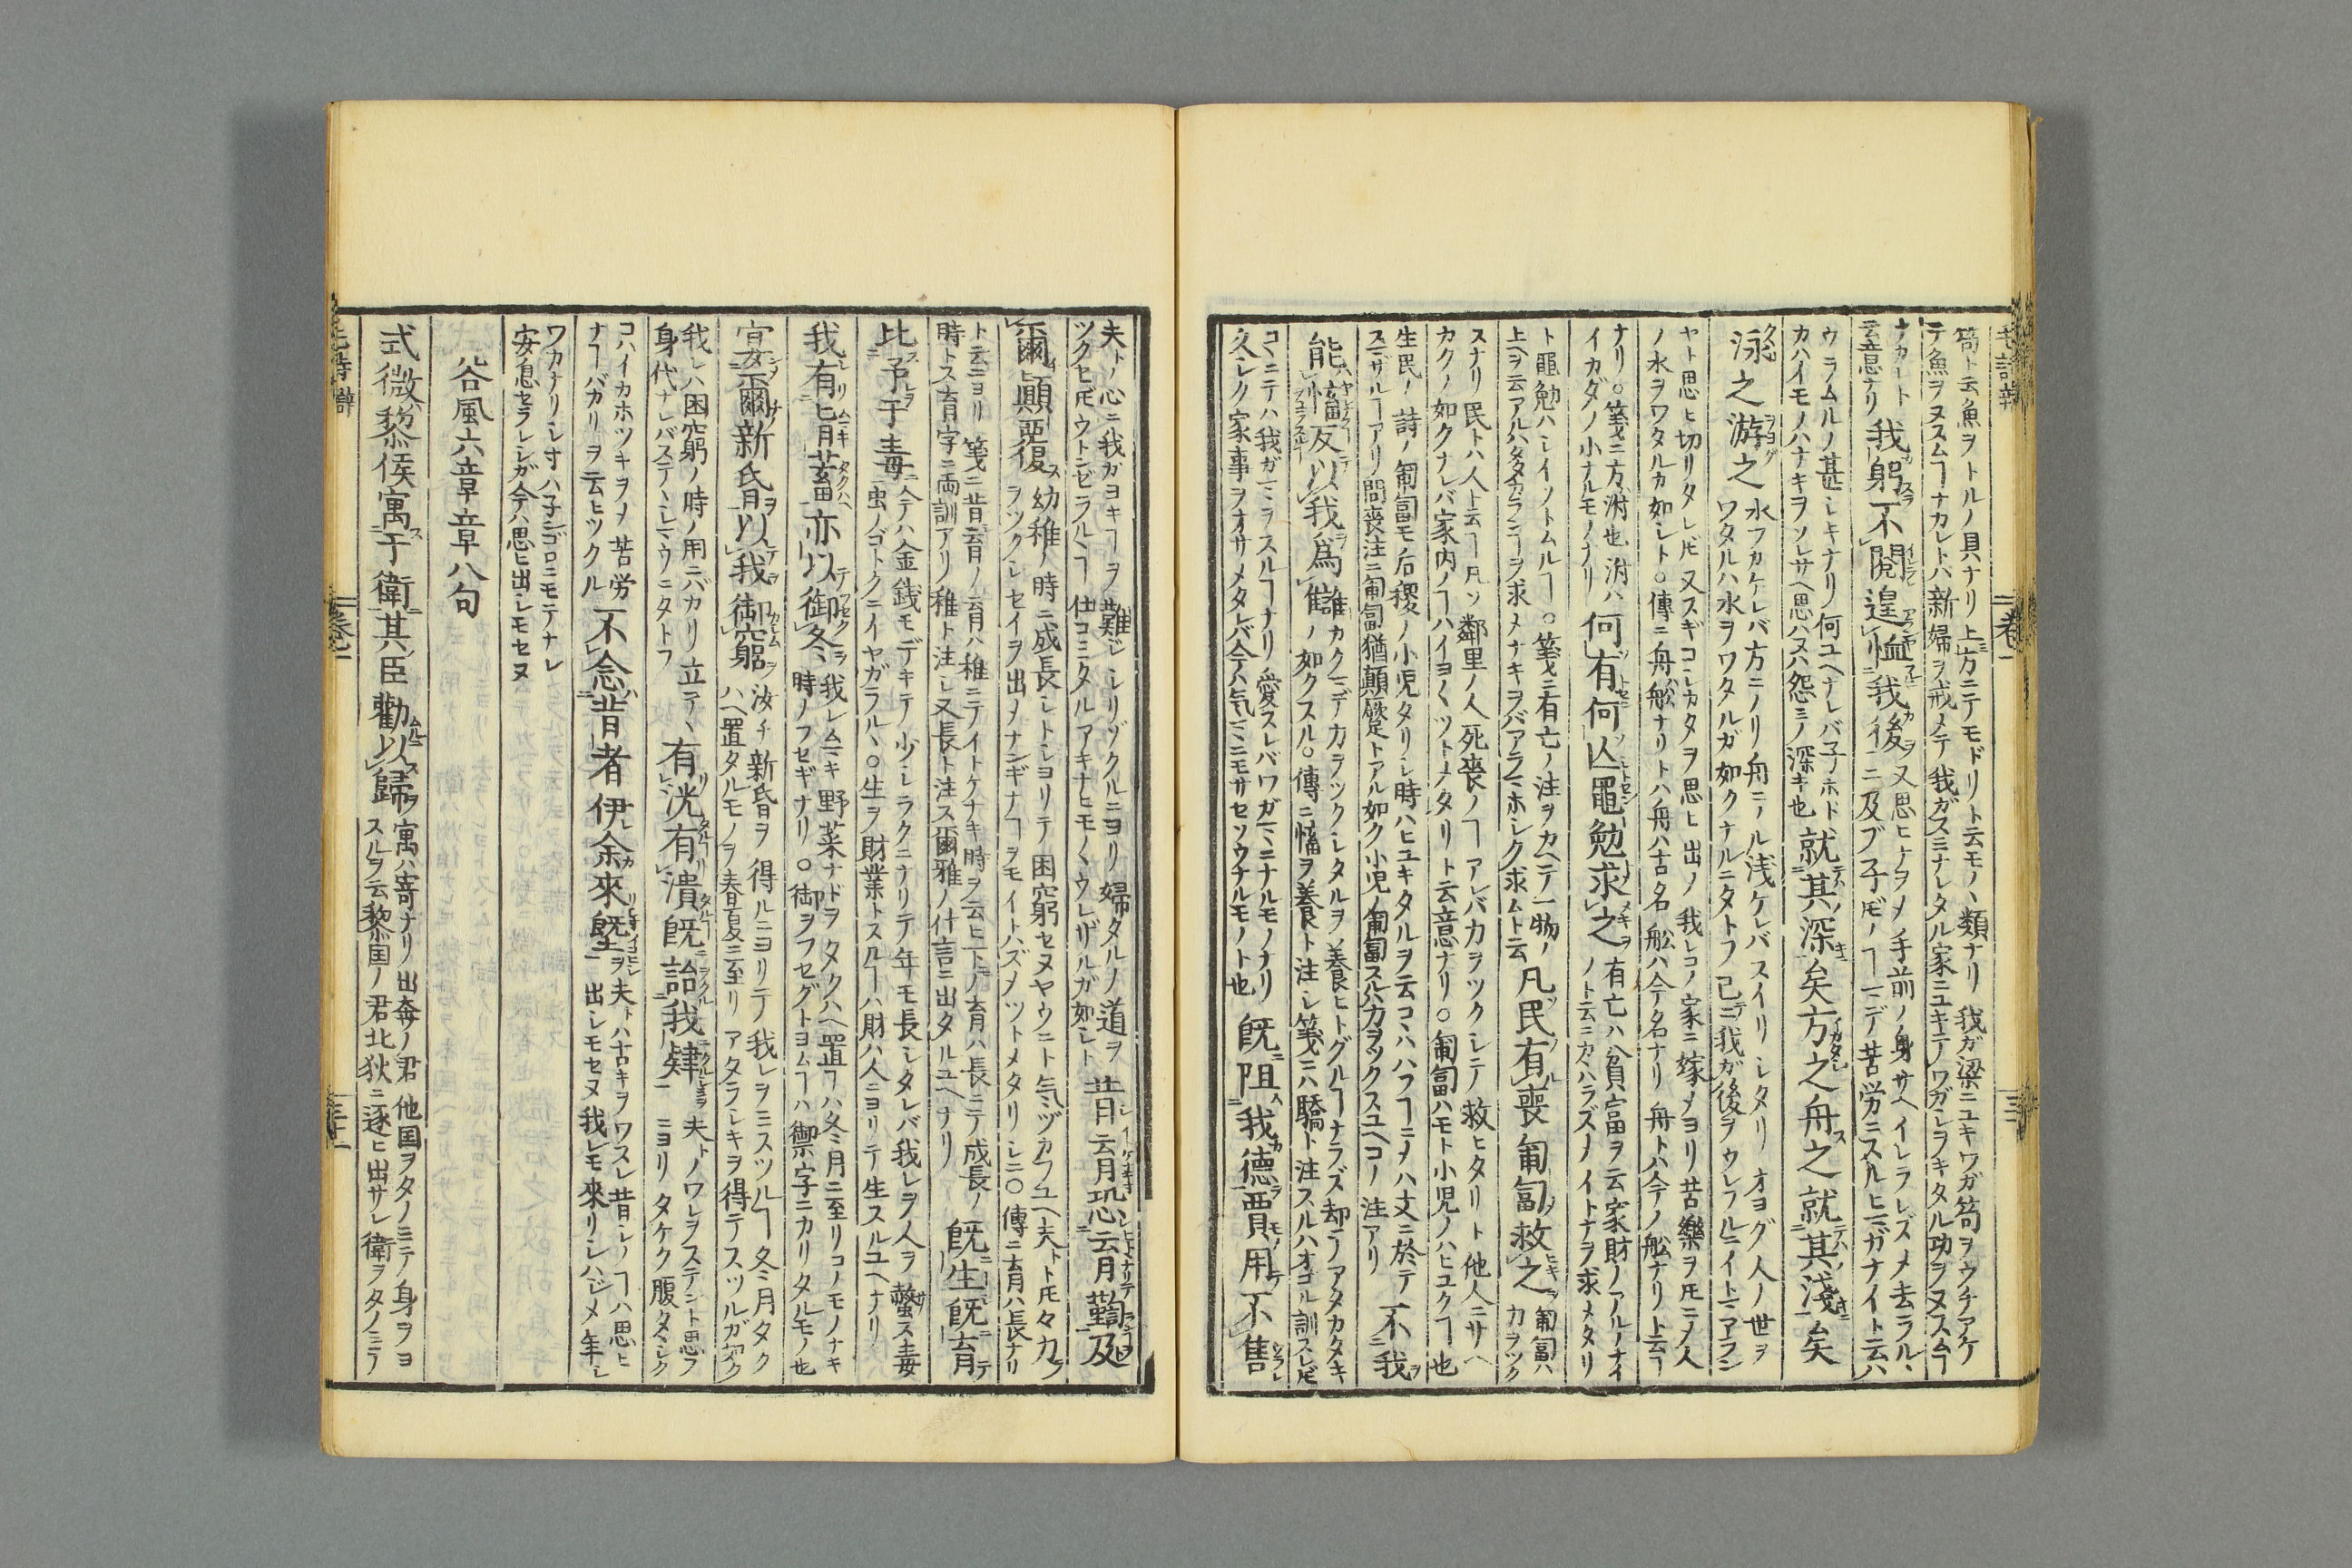 笱ト云魚ヲトルノ具ナリ上方ニテモドリト云モノヽ類ナリ 我ガ梁ニユキワガ笱ヲウチアケ
テ魚ヲヌスムヿナカレトハ新婦ヲ戒メテ我ガスミナレタル家ニユキテワガシヲキタル功ヲヌスムヿ
ナカレト云意ナリ
我躬不閱遑恤我後
又思ヒケヲメ手前ノ身サヘイレラレズメ去ラルヽニ及ブ子𪜈ノヿマデ苦労ニスルヒマガナイト云ハ
ウラムルノ甚シキナリ何ユヘナレバ子ホド
カハイモノハナキヲソレサヘ思ハヌハ怨ミノ深キ也
就其深矣方之舟之就其淺矣
泳之游之
水フカケレバ方ニノリ舟ニノル浅ケレバスイリシタリオヨグ人ノ世ヲ
ワタルハ水ヲワタルガ如クナルニタトフ已ニ我ガ後ヲウレフル
ヤト思ヒ切リタレ𪜈又スギコシカタヲ思ヒ出ノ我レコノ家ニ嫁メヨリ苦樂ヲ𪜈ニメ人
ノ水ヲワタルカ如シト○傳ニ舟舩ナリトハ舟ハ古名舩ハ今ノ名ナリ舟トハ今ノ舩ナリト云ヿ
ナリ○箋ニ方泭也泭ハ
イカダノ小ナルモノナリ
何有何亾黽勉求之
有亡ハ貧富ヲ云家財ノアルノナイ
ノト云ニカヽハラズメイトナヲ求メタリ
ト黽勉ハシイソトムルヿ○箋ニ有亡ノ注ヲカヘテ一物ノ
上ヲ云アルハ多カランヿヲ求メナキヲバアラマホシク求ムト云
凡民有喪匍匐救之
匍匐ハ
力ヲツク
スナリ民トハ人ト云ヿ凡ソ鄰里ノ人死喪ノヿアレバ力ヲツクシテ救ヒタリト他人ニサヘ
カクノ如クナレバ家内ノヿハイヨ〱ツトメタリト云意ナリ○匍匐ハモト小児ノハヒユクヿ也
生民ノ詩ノ匍匐モ后稷ノ小児タリシ時ハヒユキタルヲ云コヽハハフヿニメハ丈ニ於テ
スマザルヿアリ問喪注ニ匍匐猶顛蹷トアル如ク小児ノ匍匐スルハ力ヲツクスユヘコノ注アリ
不我
能慉反以我爲讎
カクマデ力ヲツクシタルヲ養ヒトグルヿナラズ却テアタカタキ
ノ如クスル○傳ニ慉ヲ養ト注シ箋ニハ驕ト注スルハオゴル訓スレ𪜈
コヽニテハ我ガマヽヲスルヿナリ愛スレバワガマヽニナルモノナリ
久シク家ノ事ヲオサメタレバ今ハ気マヽニモサセソウナルモノト也
既阻我德賈用不售
毛詩辨 卷一
夫トノ心ニ我ガヨキヿヲ難ジシリゾクルニヨリ婦タルノ道ヲ
ツクセ𪜈ウトンゼラルヽヿ仕コミタルアキナヒモノヽウレザルガ如シト
昔育恐育鞫及
爾顚覆
幼稚ノ時ニ成長シトシヨリテ困窮セヌヤウニト気ヅカフユヘ夫トト𪜈々力
ヲツクシセイヲ出メナンギナヿヲモイトハズメツトメタリシニ○傳ニ育ハ長ナリ
ト云ニヨリ箋ニ昔育ノ育ハ稚ニテイトケナキ時ヲ云ヒ下ノ育ハ長ニテ成長ノ
時トス育字ニ両訓アリ稚ト注シ又長ト注ス爾雅ノ什言ニ出タルユヘナリ
既生既育
比予于毒
今テハ金銭モデキテ少シラクニナリテ年モ長シタレバ我レヲ人ヲ螫ス毒
虫ノゴトクニイヤガラルヽ○生ヲ財業トスルヿハ財ハ人ニヨリテ生スルユヘナリ
我有旨蓄亦以御冬
我レムマキ野菜ナドヲタクハヘ置ヿハ冬月ニ至リコノモノナキ
時ノフセギナリ○御ヲフセグトヨムヿハ禦字ニカリタルモノ也
宴爾新昏以我御窮
汝ヂ新昏ヲ得ルニヨリテ我レヲミスツルヿ冬月タク
ハヘ置タルモノヲ春夏ニ至リアタラシキヲ得テスツルガ如ク
我レハ困窮ノ時ノ用ニバカリ立テヽ
身代ナレバステヽシマウニタトフ
有洸有潰既詒我肄
夫トノワレヲステント思フ
ニヨリタケク腹タヽシク
コハイカホツキヲメ苦労
ナヿバカリヲ云ヒツクル
不念昔者伊余來塈
夫トハ古キヲワスレ昔シノヿハ思ヒ
出シモセヌ我レモ來リシハジメ年シ
ワカナリシ寸ハ子ンゴロニモテナシ
安息セラレシガ今ハ思ヒ出シモセヌ
谷風六章章八句
式微黎侯寓于衛其臣勸以歸
寓ハ寄ナリ出奔ノ君他国ヲタノミテ身ヲヨ
スルヲ云黎国ノ君北狄ニ逐ヒ出サレ衛ヲタノミテ
毛詩辨 卷一 三十一